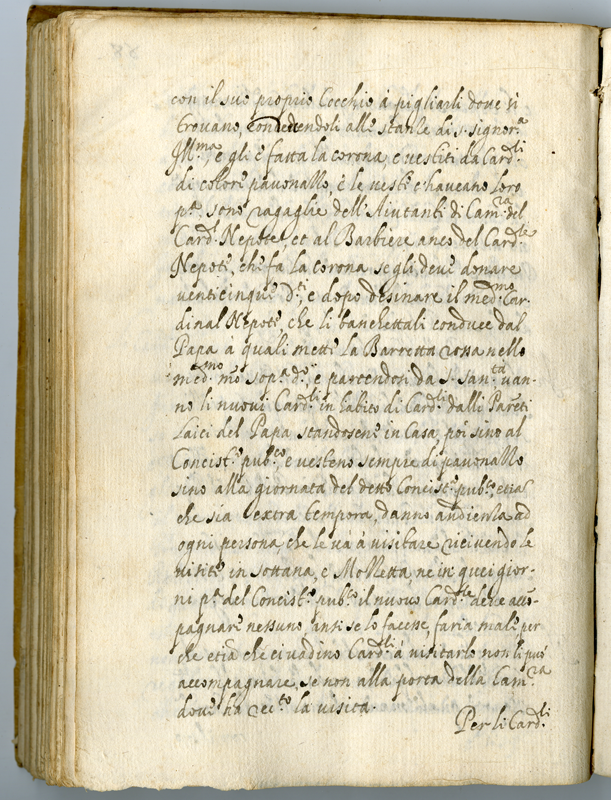 con il suo proprio Cocchio à pigliarli dove si
trovano, conducendoli alle stanze di s. signor.a
Ill.ma, e gli è fatta la corona, e vestiti da Card.li
di colore pavonazzo, è le vesti c'haveano loro
p.a, sono ragaglie dell'Aiutanti di Cam.ra del
Card.l Nepote, et al Barbiere anco del Card.le
Nepote, che fa la corona se gli deve donare
venticinque D.ti, e dopo desinare il med.mo Car-
dinal Nepote, che li banchettali conduce dal
Papa à quali mette la Barretta rossa nello
med.mo mo sop.a d.o, e partendosi da s. san.tà van-
no li nuovi Card.li in habito di Card.li dalli Pareti
Laici del Papa standosene in Casa poi sino al
Concist.o pub.co e vesteno sempre di pavonazzo
sino alla giornata del detto Concist.o pub.co, etiā
che sia extra tempora, danno audienza ad
ogni persona che le va à visitare ricivendo le
visite in sottana, e Mozzetta ne in quei gior-
ni p.a del Concist.o pub.co il nuovo Card.le deve accō-
pagnare nessuno anzi se lo facesse, faria male per
che etiā che ci vadino Card.li à visitarlo non li può
accompagnare, se non alla porta della Cam.ra
dove ha rec.to la visita.
Per li Card.li